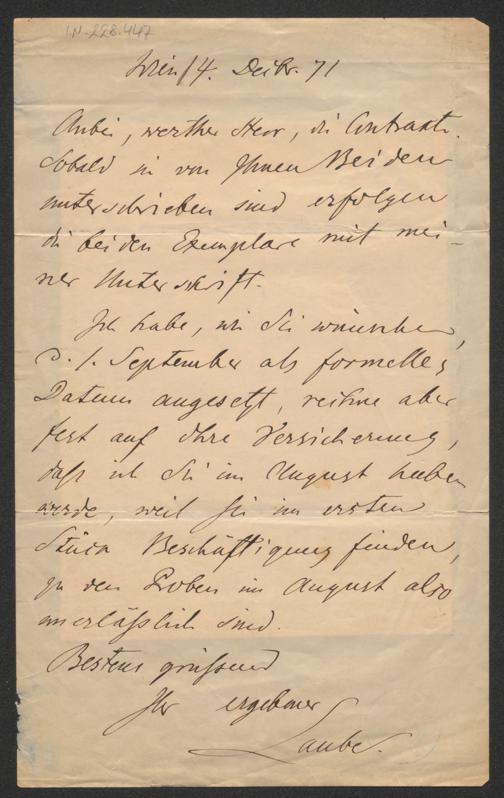 IN-228.447
Wien 14. Decbr. 71
Anbei, werther Herr, die Contrakte.
Sobald sie von Ihnen Beiden
unterschrieben sind erfolgen
die beiden Exemplare mit mei-
ner Unterschrift.
Ich habe, wie Sie wünschen,
d. 1. September als formelles
Datum angesetzt, rechne aber
fest auf Ihre Versicherung,
daß ich Sie im August haben
werde, weil Sie im ersten
Stück Beschäftigung finden,
zu den Proben im August also
unerläßlich sind.
Bestens grüßend
Ihr ergebener
Laube.